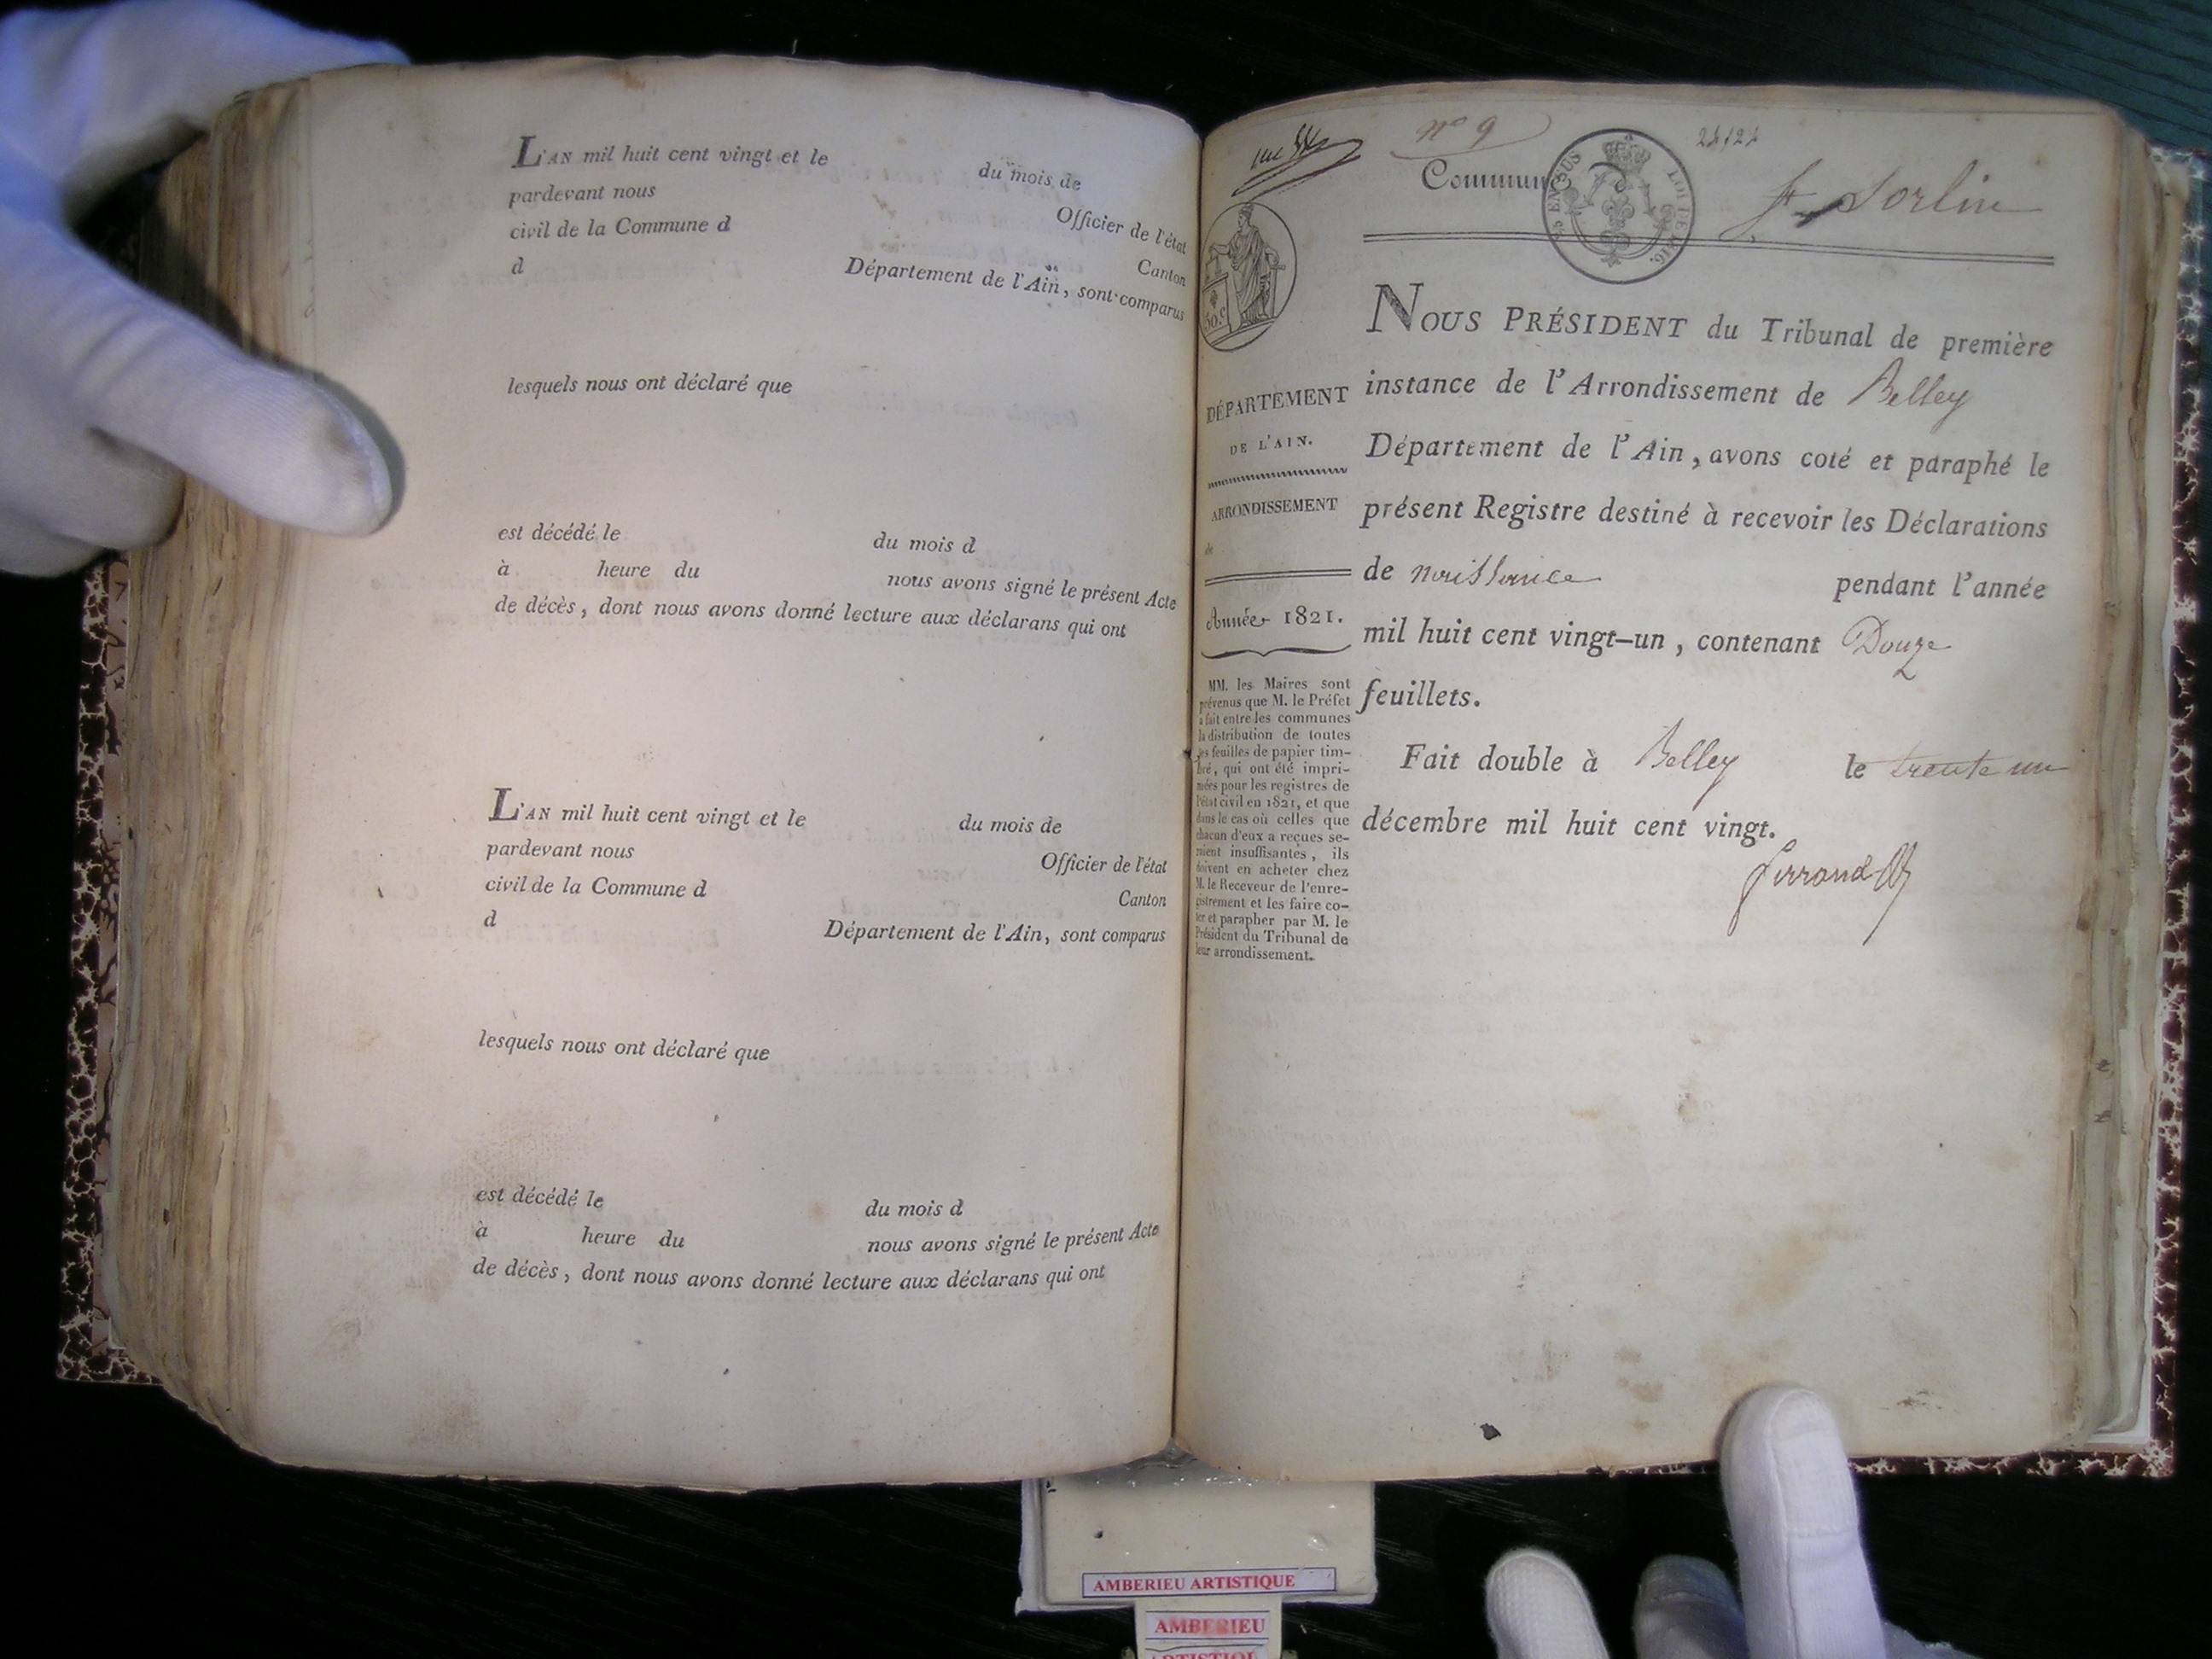 L'AN mil huit cent vingt et le du mois de
pardevant nous Officier de l'état
civil de la Commune d Canton
d Département de l'Ain, sont comparus
lesquels nous ont déclaré que
est décédé le du mois d
à heure du nous avons signé le présent Acte
de décès, dont nous avons donné lecture aux déclarans qui ont
L'AN mil huit cent vingt et le du mois de
pardevant nous Officier de l'état
civil de la Commune d Canton
d Département de l'Ain, sont comparus
lesquels nous ont déclaré que
est décédé le du mois d
à heure du nous avons signé le présent Acte
de décès, dont nous avons donné lecture aux déclarans qui ont
n° 9
Commune St Sorlin
EN SUS
LOI DE 1816.
50.c
DÉPARTEMENT
DE L'AIN.
ARRONDISSEMENT
de
Année 1821.
MM. les Maires sont
prévenus que M. le Préfet
a fait entre les communes
la distribution de toutes
les feuilles de papier tim-
bré, qui ont été impri-
mées pour les registres de
l'état civil en 1821, et que
dans le cas où celles que
chacun d'eux a reçues se-
roient insuffisantes, ils
doivent en acheter chez
M. le Receveur de l'enre-
gistrement et les faire co-
ter et parapher par M. le
Président du Tribunal de
leur arrondissement.
NOUS PRÉSIDENT du Tribunal de première
instance de l'Arrondissement de Belley
Département de l'Ain, avons coté et paraphé le
présent Registre destiné à recevoir les Déclarations
de naissance pendant l'année
mil huit cent vingt-un, contenant Douze
feuillets.
Fait double à Belley le trente un
décembre mil huit cent vingt.
AMBERIEU ARTISTIQUE
AMBERIEU
ARTISTIQUE